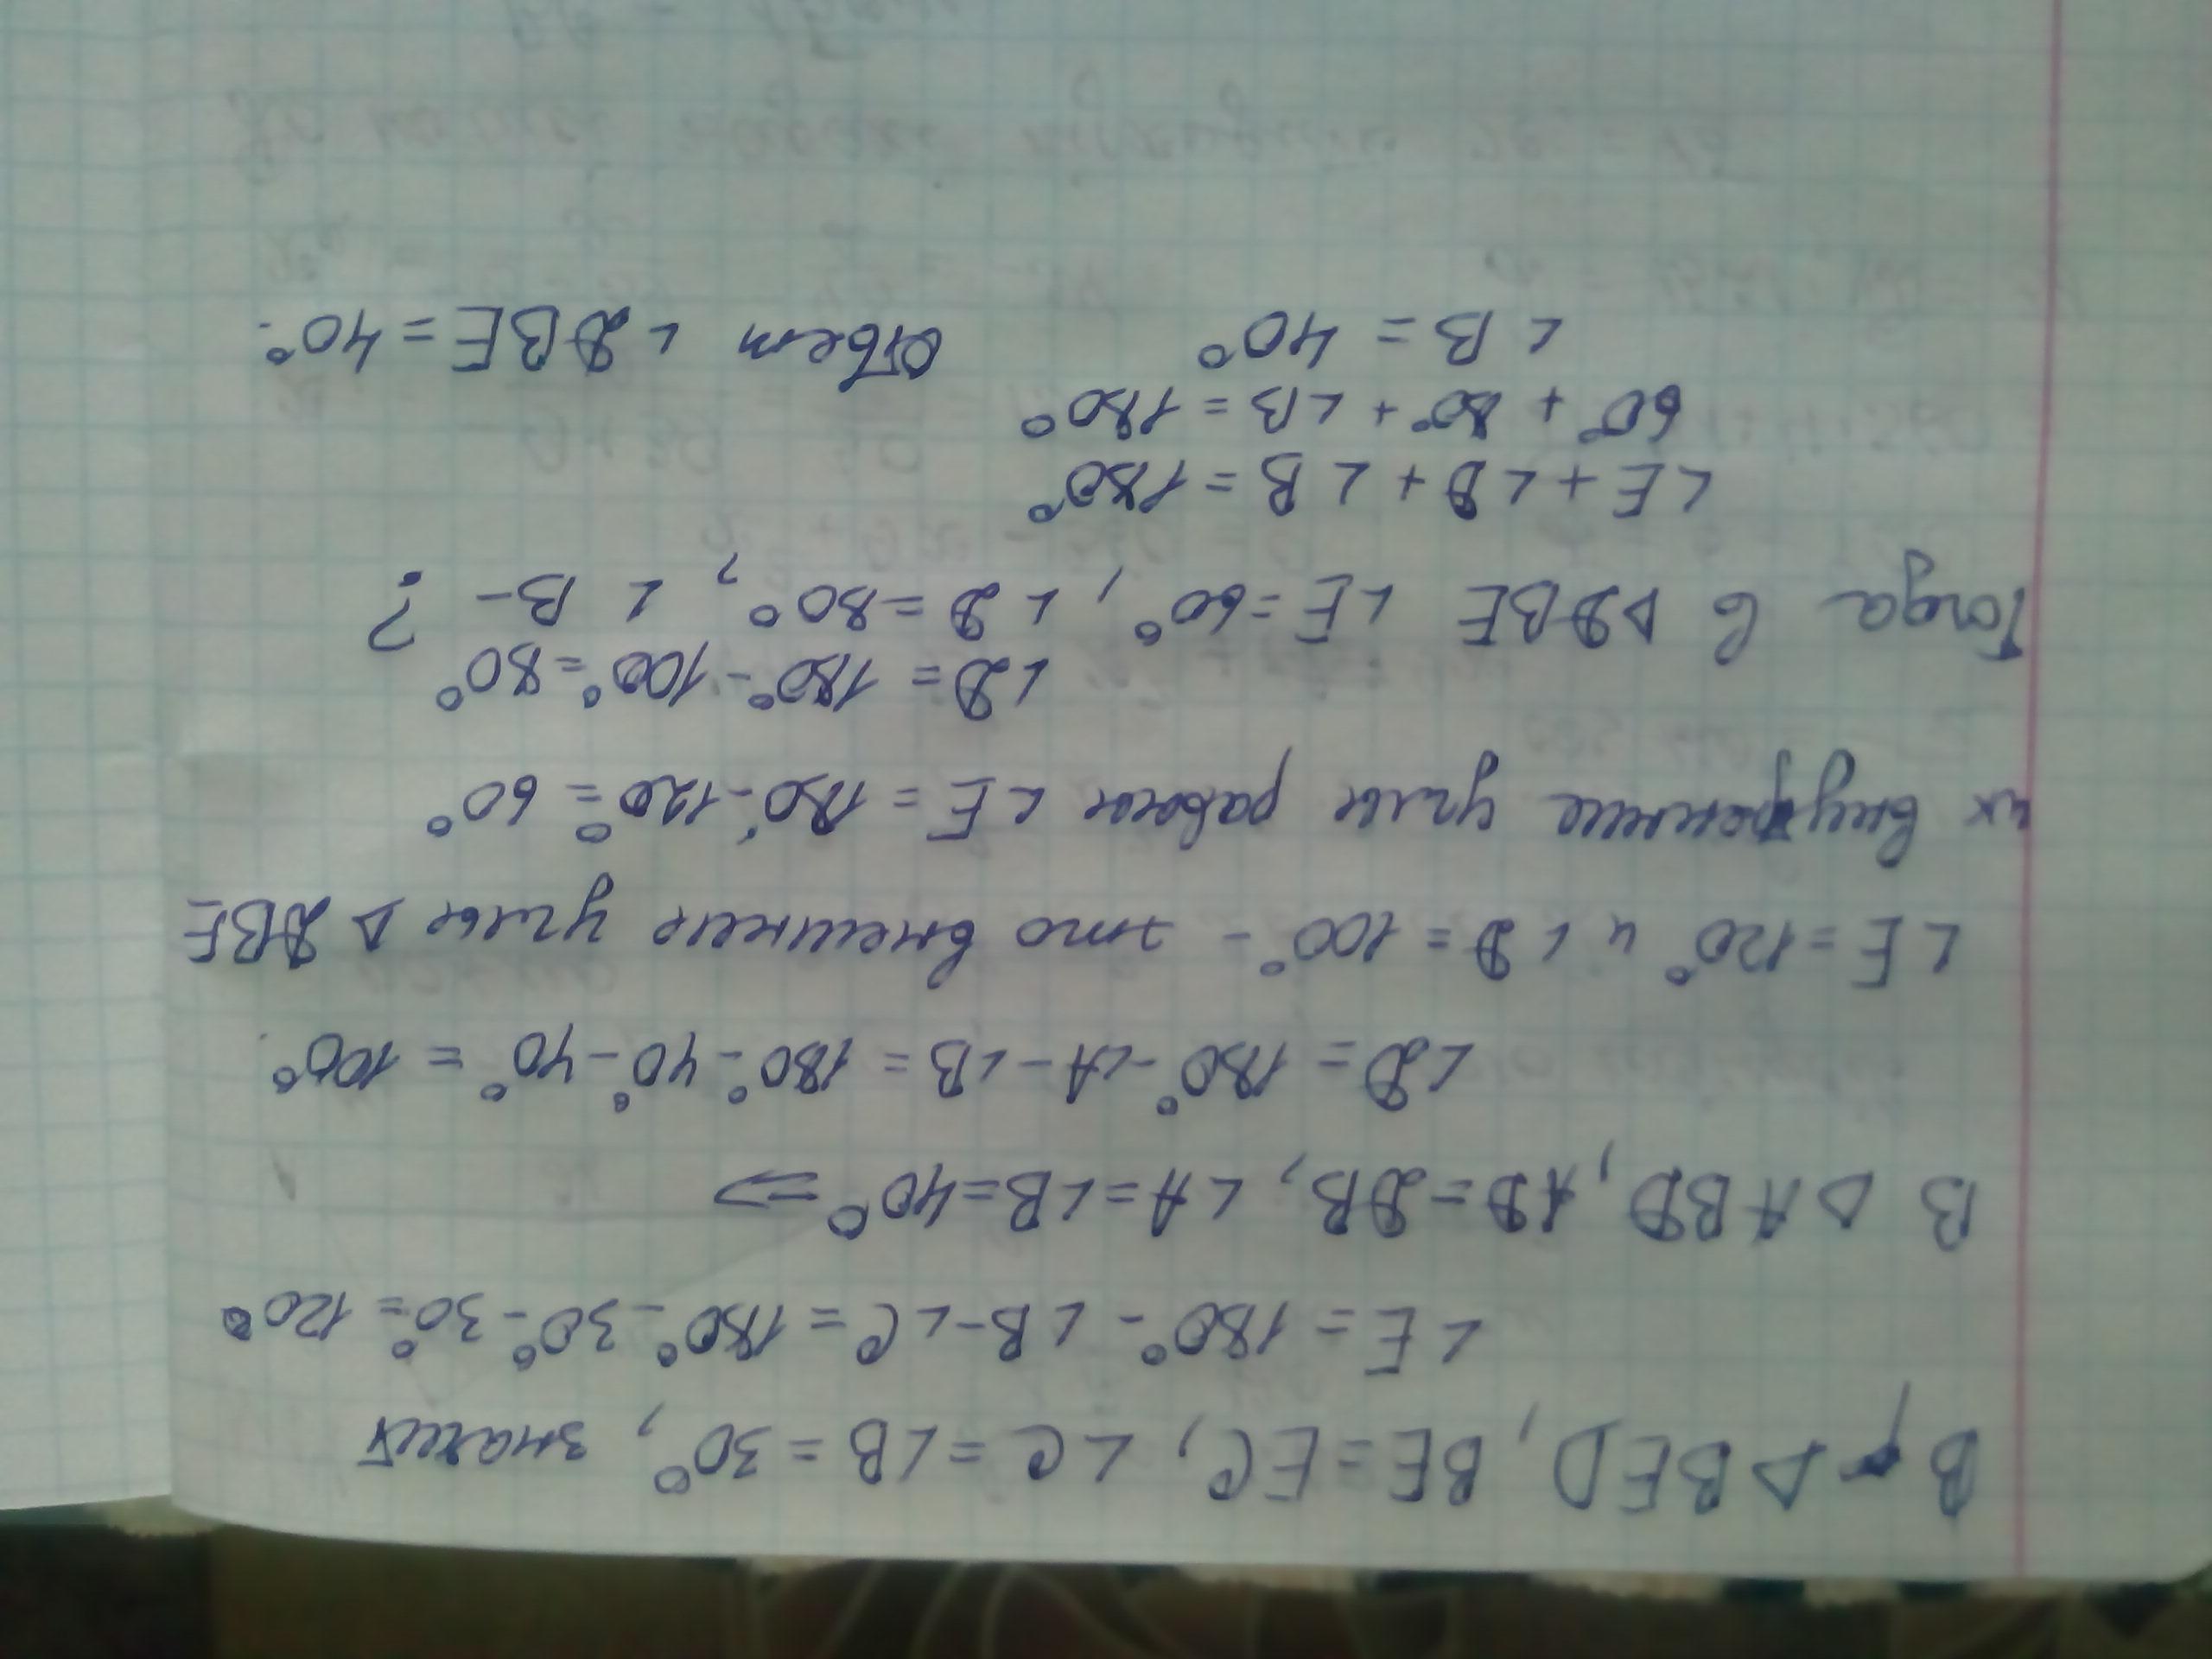 В △ BED, BE = EC, ∠C = ∠B = 30°, значит
∠E = 180° - ∠B - ∠C = 180° - 30° - 30° = 120°
В △ ABD, AD = DB, ∠A = ∠B = 40° ⇒
∠D = 180° - ∠A - ∠B = 180° - 40° - 40° = 100°
∠E = 120° и ∠D = 100° - это внешние углы △ DBE
их внутренние углы равны ∠E = 180° - 120° = 60°
∠D = 180° - 100° = 80°
Тогда в △DBE ∠E = 60°, ∠D = 80°, ∠B - ?
∠E + ∠D + ∠B = 180°
60° + 80° + ∠B = 180°
∠B = 40° Ответ ∠DBE = 40°.